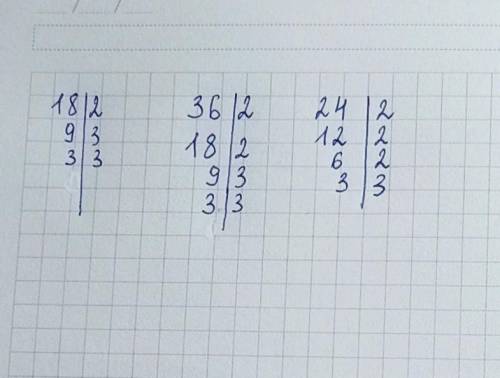 18|2 36|2 24|2
9|3 18|2 12|2
3|3 9|3 6|2
3|3 3|3